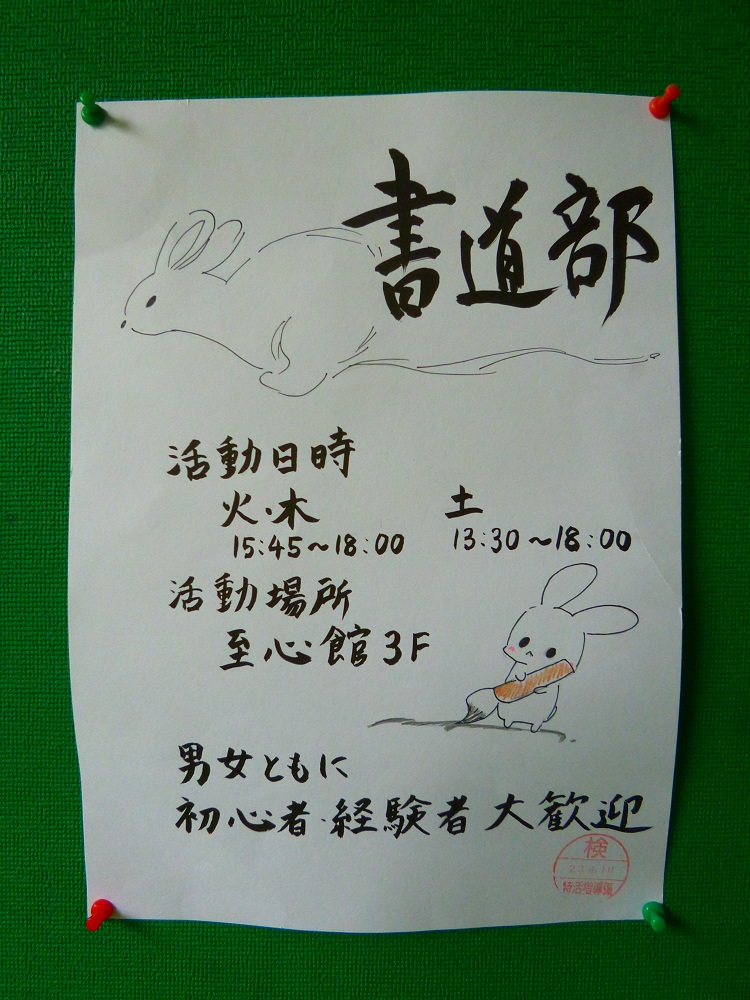 書道部
活動日時
火・木 土
15:45～18:00 13:30～18:00
活動場所
至心館3F
男女ともに
初心者・経験者 大歓迎
検